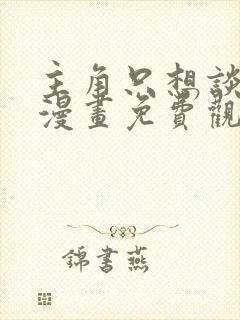 主角只想談
漫畫免費觀
錦書燕